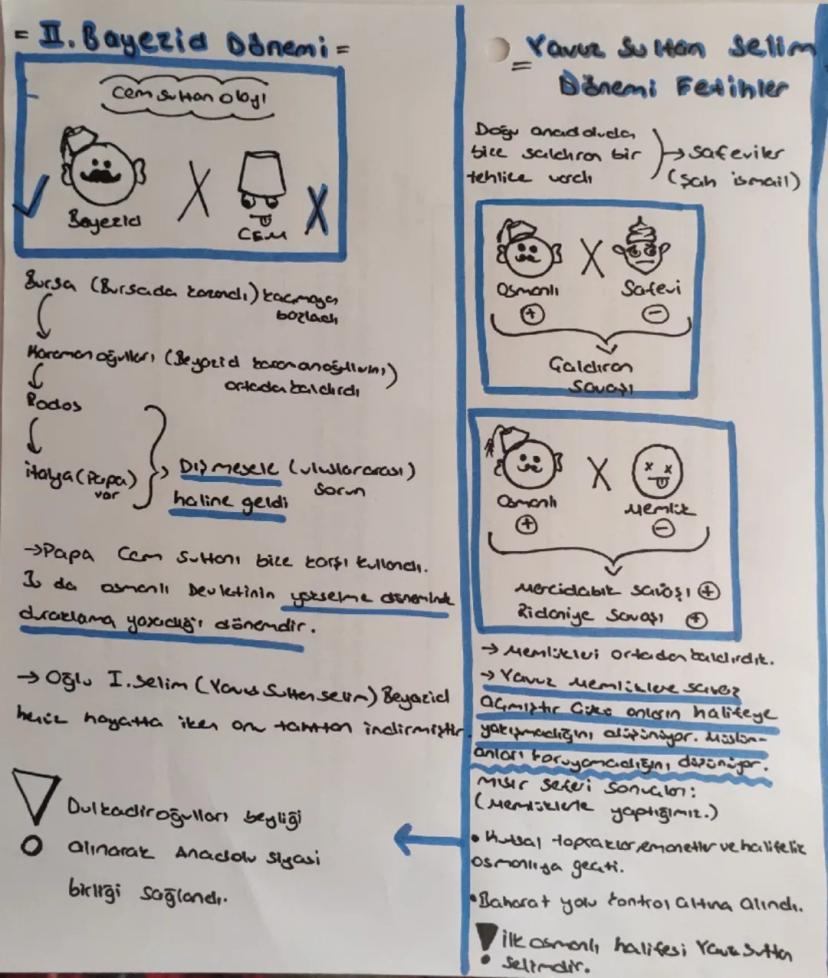 = II. Bayezid Dönemi =
Cem Sultan Olayı
Bayezid
X
CEM
X
Bursa (Bursada kazandı) kaçmaya
başladı
Karaman oğulları (Beyazid karamanoğullarını)
ortadakaldırdı
Rodos
italya (Papa)
var
Dış mesele (uluslararası)
haline geldi
sorun
→Papa Cem Sultanı bize karşı kullandı.
da osmanlı Devletinin yükselme döneminde
duraklama yaşadığı dönemdir.
→ Oğlu I. Selim (Yavuz Sultan Selim) Beyazid
henüz hayatta iken onu tahttan indirmiştir.
Dulkadiroğulları beyliği
alınarak Anadolu siyasi
birliği sağlandı.
= Yavuz Sultan Selim
Dönemi Fetihler
Doğu anadoluda
bize saldıran bir
tehlike vardı
→ Safeviler
(Şah ismail)
Osmanlı
+
X
Safevi
-
Çaldıran
Savaşı
Osmanlı
+
X
Memlük
-
Mercidabık savaşı +
Ridaniye Savaşı +
→ Memlükleri ortadan kaldırdık.
→ Yavuz Memlüklere savaş
açmıştır Çünkü onların halifeye
yakışmadığını düşünüyor. Müslüm-
anları koruyamadığını düşünüyor.
Mısır Seferi Sonuçları:
(Memlüklerle yaptığımız.)
• Kutsal topraklar, emanetler ve halifelik
osmanlıya geçti.
• Baharat yolu kontrol altına alındı.
! İlk osmanlı halifesi Yavuz Sultan
Selimdir.